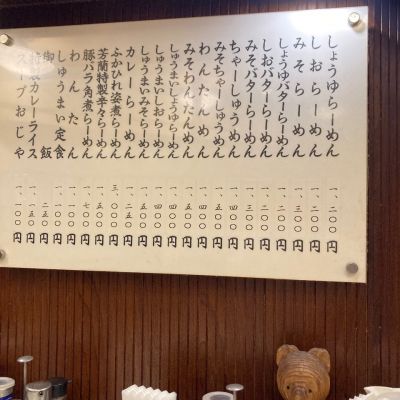 しょうゆらーめん 一、二〇〇円
しおらーめん 一、二〇〇円
みそらーめん 一、三〇〇円
しょうゆバターらーめん 一、二〇〇円
しおバターらーめん 一、二〇〇円
みそバターらーめん 一、三〇〇円
ちゃーしゅうめん 一、四〇〇円
みそちゃーしゅうめん 一、五〇〇円
わんたんめん 一、四〇〇円
みそわんたんめん 一、五〇〇円
しゅうまいしょうゆらーめん 一、四〇〇円
しゅうまいしおらーめん 一、四〇〇円
しゅうまいみそらーめん 一、五〇〇円
カレーらーめん 一、二五〇円
ふかひれ姿煮らーめん 三、〇〇〇円
芳蘭特製辛々らーめん 一、五〇〇円
豚バラ角煮らーめん 一、七〇〇円
わんたん 一、〇〇〇円
しゅうまい定食 一、一〇〇円
御飯 二五〇円
特製カレーライス 一、一五〇円
スープおじや 一、一〇〇円